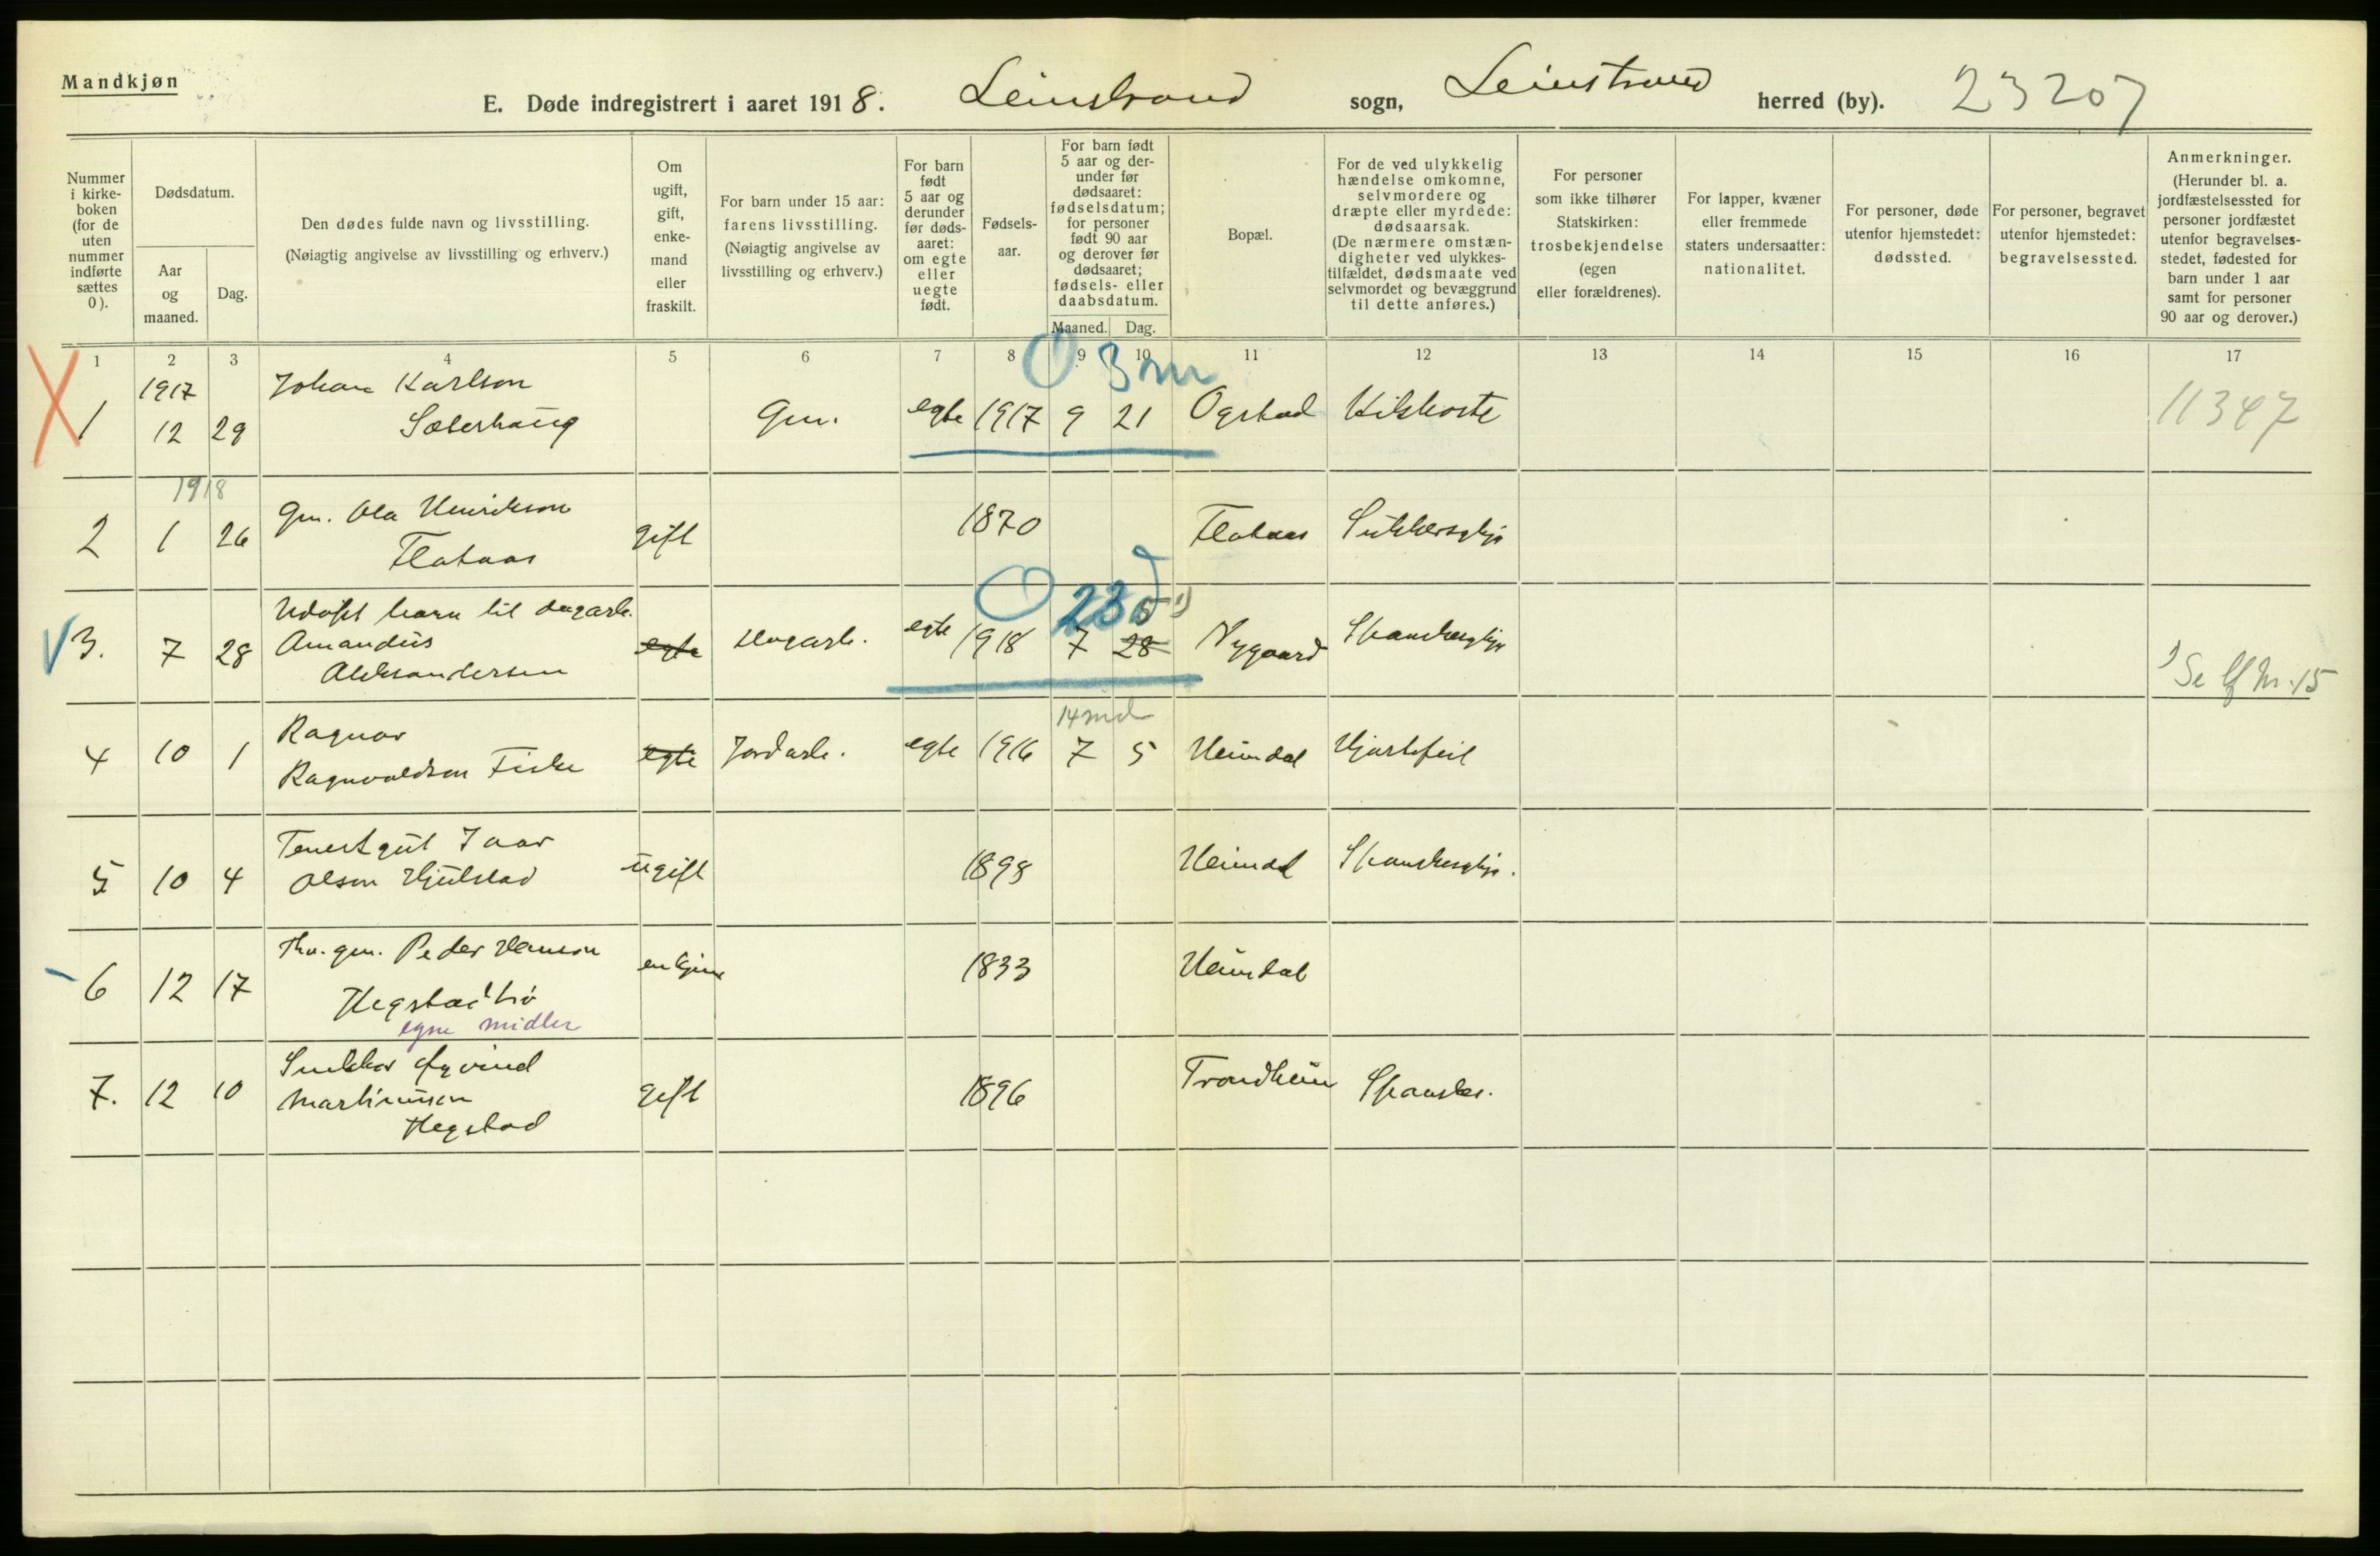 Mandkjøn
E. Døde indregistrert i aaret 1918. Leinstrand sogn, Leinstrand herred (by). 23207
Nummer i kirke-boken (for de uten nummer indførte sættes 0).
Dødsdatum.
Aar og maaned.
Dag.
Den dødes fulde navn og livsstilling.
(Nøiagtig angivelse av livsstilling og erhverv.)
Om ugift, gift, enke-mand eller fraskilt.
For barn under 15 aar: farens livsstilling.
(Nøiagtig angivelse av livsstilling og erhverv.)
For barn født 5 aar og derunder før døds-aaret: om egte eller uegte født.
Fødsels-aar.
For barn født 5 aar og der-under før dødsaaret: fødselsdatum; for personer født 90 aar og derover før dødsaaret; fødsels- eller daabsdatum.
Maaned. Dag.
Bopæl.
For de ved ulykkelig hændelse omkomne, selvmordere og dræpte eller myrdede: dødsaarsak.
(De nærmere omstæn-digheter ved ulykkes-tilfældet, dødsmaate ved selvmordet og bevæggrund til dette anføres.)
For personer som ikke tilhører Statskirken: trosbekjendelse (egen eller forældrenes).
For lapper, kvæner eller fremmede staters undersaatter: nationalitet.
For personer, døde utenfor hjemstedet: dødssted.
For personer, begravet utenfor hjemstedet: begravelsessted.
Anmerkninger.
(Herunder bl. a. jordfæstelsessted for personer jordfæstet utenfor begravelses-stedet, fødested for barn under 1 aar samt for personer 90 aar og derover.)
1 2 3 4 5 6 7 8 9 10 11 12 13 14 15 16 17
3 m
1917 Johan Karlson
1 12 29 Sæterhaug Gm. egte 1917 9 21 Ogstad Kikhoste 11347
1918
2 1 26 Gm. Ola Henrikson gift 1870 Flataas Sukkersyke
Flataas
23 d
Udøpt barn til dagarb. 5 1)
3. 7 28 Amandus egte dagarb. egte 1918 7 28 Nygaard Spanskesyke
Aleksandersen 1) Se lf Nr. 15
14 md
4 10 1 Ragnar egte Jordarb. egte 1916 7 5 Heimdal Hjertefeil
Ragnvaldsen Fiske
Tenestgut Ivar
5 10 4 Olsen Hjulstad ugift 1898 Heimdal Spanskesyke.
6 12 17 Fhv. gm. Peder Hanson 1833 Heimdal
Hegstadtrø
egne midler
Snekker Øyvind
7. 12 10 Martinusen gift 1896 Trondheim Spanskes.
Hegstad